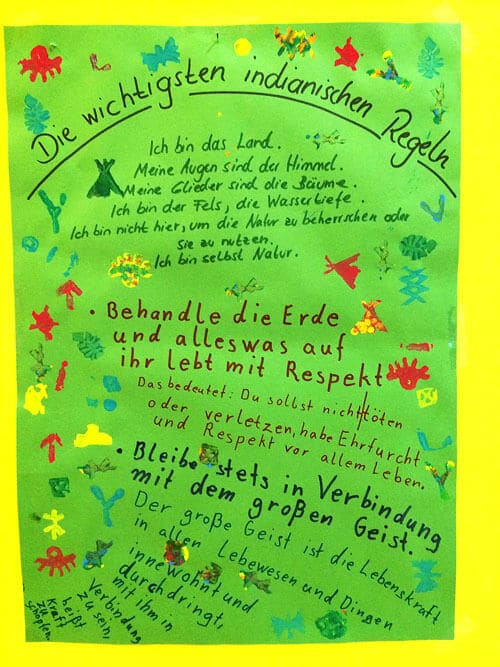 Die wichtigsten indianischen Regeln
Ich bin das Land.
Meine Augen sind der Himmel.
Meine Glieder sind die Bäume.
Ich bin der Fels, die Wassertiefe.
Ich bin nicht hier, um die Natur zu beherrschen oder
sie zu nutzen.
Ich bin selbst Natur.
• Behandle die Erde
und alleswas auf
ihr lebt mit Respekt
Das bedeutet: Du sollst nicht töten
oder verletzen, habe Ehrfurcht
und Respekt vor allem Leben.
• Bleibe stets in Verbindung
mit dem großen Geist.
Der große Geist ist die Lebenskraft
in allen Lebewesen und Dingen
innewohnt und
durchdringt,
mit ihm in
Verbindung
zu sein,
heißt
Kraft
zu
schöpfen